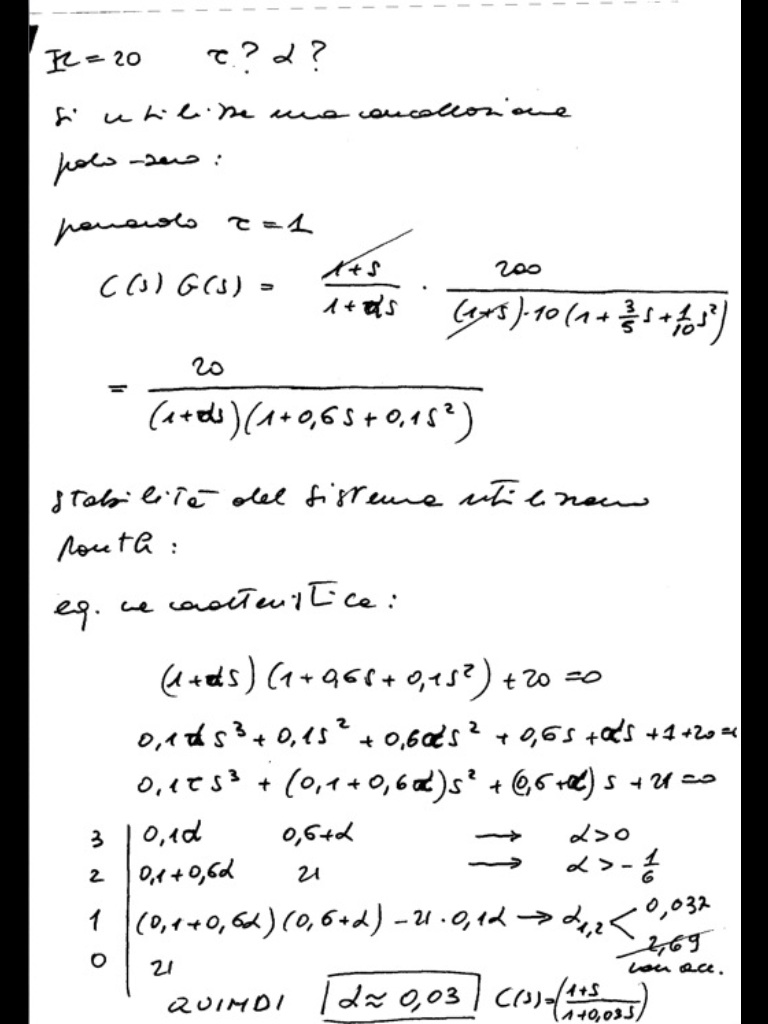 K = 20 τ? α?
Si utilizza una cancellazione
polo-zero:
ponendo τ = 1
C(s) G(s) = (1+s)/(1+αs) · 200/((1+s)·10(1+3/5 s+1/10 s²))
= 20/((1+αs)(1+0,6s+0,1s²))
stabilità del sistema utilizzando
Routh:
eq. ne caratteristica:
(1+αs)(1+0,6s+0,1s²)+20=0
0,1αs³+0,1s²+0,6αs²+0,6s+αs+1+20=0
0,1τs³+(0,1+0,6α)s²+(0,6+α)s+21=0
3 | 0,1α 0,6+α → α>0
2 | 0,1+0,6α 21 → α>-1/6
1 | (0,1+0,6α)(0,6+α)-21·0,1α → α1,2 < 0,032
2,69
0 | 21 non acc.
QUINDI α≈0,03 C(s)=((1+s)/(1+0,03s))